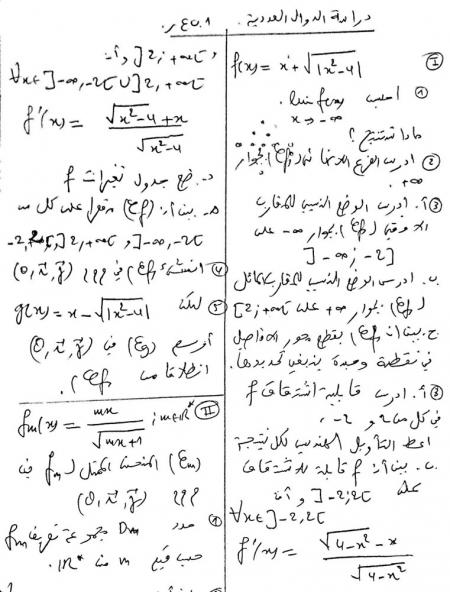 دراسة الدوال العددية.
I
f(x) = x + √|x²-4|
① احسب lim f(x)
x → -∞
ماذا تستنتج؟
② ادرس الفرع اللانهائي لـ (Cf) بجوار
+∞
③ أ. ادرس الوضع النسبي للمقارب
الأفقي و (Cf) بجوار -∞ على
]-∞; -2]
ب. ادرس الوضع النسبي للمقارب المائل
لـ (Cf) بجوار +∞ على [2; +∞[
ج. بين أن (Cf) يقطع محور الأفاصيل
في نقطة وحيدة ينبغي تحديدها.
③ أ. ادرس قابلية اشتقاق f
في كل من 2 و -2،
اعط التأويل الهندسي لكل نتيجة
ب. بين أن f قابلة للاشتقاق
على ]-2;2[ و أن
∀x∈]-2,2[
f'(x) = (√(4-x²) - x) / √(4-x²)
]2; +∞[ و أن
∀x∈]-∞,-2[∪]2,+∞[
f'(x) = (√(x²-4) + x) / √(x²-4)
د. ضع جدول تغيرات f
هـ. بين أن (Cf) مقعر على كل من
]-∞,-2[ و ]2,+∞[
④ أنشئ (Cf) في م م م (O, i, j)
⑤ لتكن g(x) = x - √|x²-4|
أرسم (Cg) في (O, i, j)
انطلاقا من (Cf).
II
fm(x) = mx / √(mx+1) ; m∈ℝ*
(Cm) المنحنى الممثل لـ fm في
م م م (O, i, j)
① حدد Dm مجموعة تعريف fm
حسب قيم m من ℝ*.